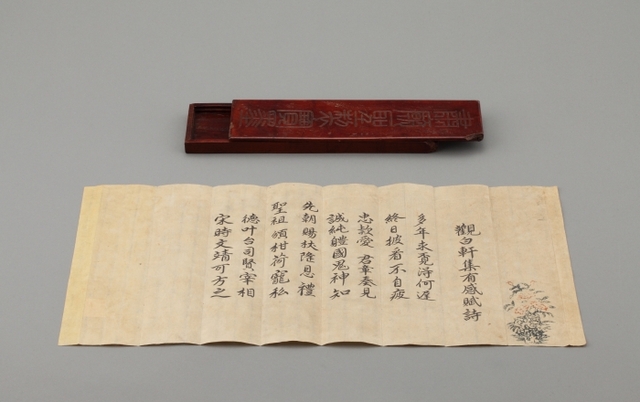 觀白軒集有感賦詩
多年求覓得何遲
終日披看不自疲
忠敦愛 君章奏見
誠純軆國鬼神知
先朝賜扶隆恩禮
聖祖頒柑荷寵私
德叶台司賢宰相
宋時文靖可方之